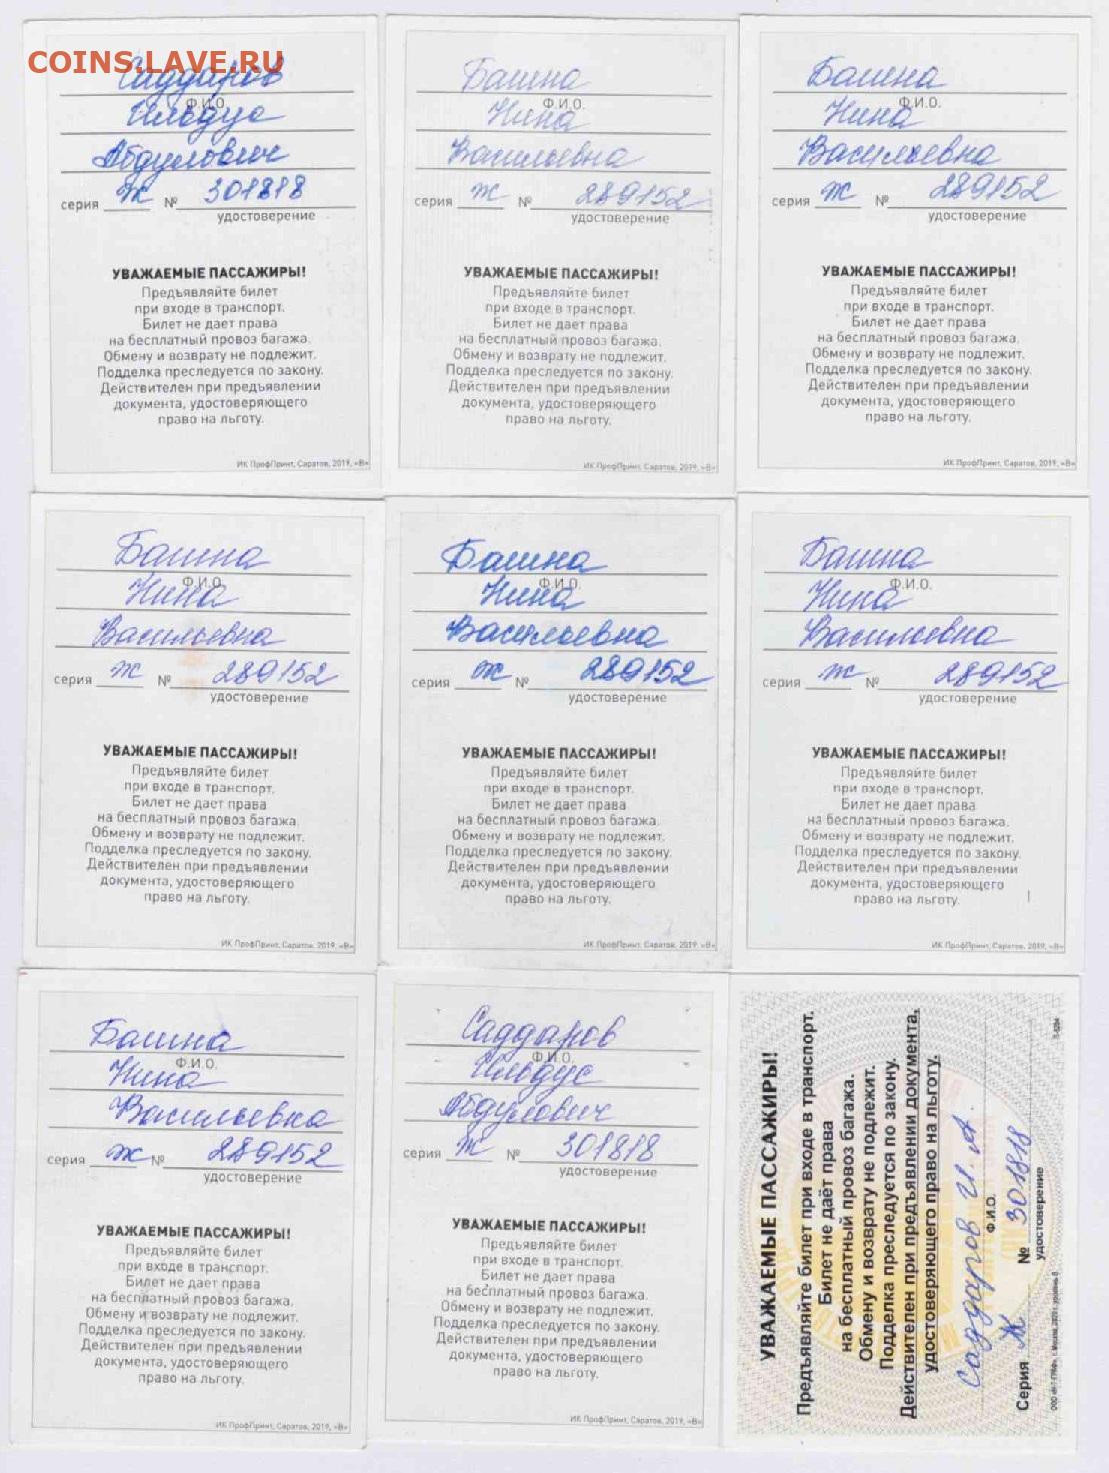 COINS.LAVE.RU
Саддаров
Ф.И.О.
Ильдус
Абдулович
серия Ж № 301818
удостоверение
УВАЖАЕМЫЕ ПАССАЖИРЫ!
Предъявляйте билет
при входе в транспорт.
Билет не дает права
на бесплатный провоз багажа.
Обмену и возврату не подлежит.
Подделка преследуется по закону.
Действителен при предъявлении
документа, удостоверяющего
право на льготу.
ИК ПрофПринт, Саратов, 2019, «В»
Башна
Ф.И.О.
Нина
Васильевна
серия Ж № 289152
удостоверение
УВАЖАЕМЫЕ ПАССАЖИРЫ!
Предъявляйте билет
при входе в транспорт.
Билет не дает права
на бесплатный провоз багажа.
Обмену и возврату не подлежит.
Подделка преследуется по закону.
Действителен при предъявлении
документа, удостоверяющего
право на льготу.
ИК ПрофПринт, Саратов, 2019, «В»
Башна
Ф.И.О.
Нина
Васильевна
серия Ж № 289152
удостоверение
УВАЖАЕМЫЕ ПАССАЖИРЫ!
Предъявляйте билет
при входе в транспорт.
Билет не дает права
на бесплатный провоз багажа.
Обмену и возврату не подлежит.
Подделка преследуется по закону.
Действителен при предъявлении
документа, удостоверяющего
право на льготу.
ИК ПрофПринт, Саратов, 2019, «В»
Башна
Ф.И.О.
Нина
Васильевна
серия Ж № 289152
удостоверение
УВАЖАЕМЫЕ ПАССАЖИРЫ!
Предъявляйте билет
при входе в транспорт.
Билет не дает права
на бесплатный провоз багажа.
Обмену и возврату не подлежит.
Подделка преследуется по закону.
Действителен при предъявлении
документа, удостоверяющего
право на льготу.
ИК ПрофПринт, Саратов, 2019, «В»
Башна
Ф.И.О.
Нина
Васильевна
серия Ж № 289152
удостоверение
УВАЖАЕМЫЕ ПАССАЖИРЫ!
Предъявляйте билет
при входе в транспорт.
Билет не дает права
на бесплатный провоз багажа.
Обмену и возврату не подлежит.
Подделка преследуется по закону.
Действителен при предъявлении
документа, удостоверяющего
право на льготу.
ИК ПрофПринт, Саратов, 2019, «В»
Башна
Ф.И.О.
Нина
Васильевна
серия Ж № 289152
удостоверение
УВАЖАЕМЫЕ ПАССАЖИРЫ!
Предъявляйте билет
при входе в транспорт.
Билет не дает права
на бесплатный провоз багажа.
Обмену и возврату не подлежит.
Подделка преследуется по закону.
Действителен при предъявлении
документа, удостоверяющего
право на льготу.
ИК ПрофПринт, Саратов, 2019, «В»
Башна
Ф.И.О.
Нина
Васильевна
серия Ж № 289152
удостоверение
УВАЖАЕМЫЕ ПАССАЖИРЫ!
Предъявляйте билет
при входе в транспорт.
Билет не дает права
на бесплатный провоз багажа.
Обмену и возврату не подлежит.
Подделка преследуется по закону.
Действителен при предъявлении
документа, удостоверяющего
право на льготу.
ИК ПрофПринт, Саратов, 2019, «В»
Саддаров
Ф.И.О.
Ильдус
Абдулович
серия Ж № 301818
удостоверение
УВАЖАЕМЫЕ ПАССАЖИРЫ!
Предъявляйте билет
при входе в транспорт.
Билет не дает права
на бесплатный провоз багажа.
Обмену и возврату не подлежит.
Подделка преследуется по закону.
Действителен при предъявлении
документа, удостоверяющего
право на льготу.
ИК ПрофПринт, Саратов, 2019, «В»
УВАЖАЕМЫЕ ПАССАЖИРЫ!
Предъявляйте билет при входе в транспорт.
Билет не даёт права
на бесплатный провоз багажа.
Обмену и возврату не подлежит.
Подделка преследуется по закону.
Действителен при предъявлении документа,
удостоверяющего право на льготу.
Саддаров И.А.
Ф.И.О.
Серия Ж № 301818
удостоверение